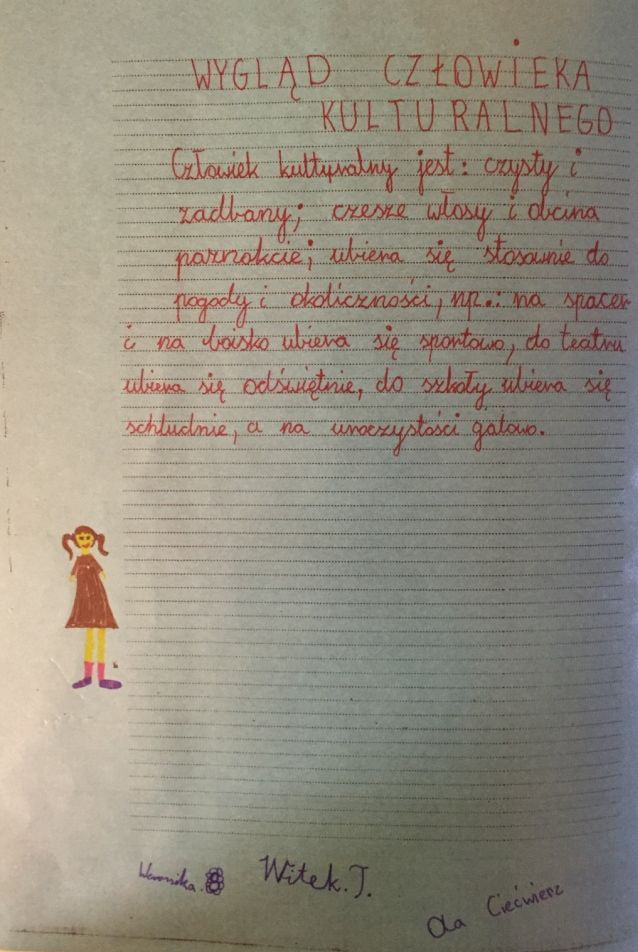 WYGLĄD CZŁOWIEKA
KULTURALNEGO
Człowiek kulturalny jest: czysty i
zadbany; czesze włosy i obcina
paznokcie; ubiera się stosownie do
pogody i okoliczności, np.: na spacer
i na boisko ubiera się sportowo, do teatru
ubiera się odświętnie, do szkoły ubiera się
schludnie, a na uroczystości galowo.
Weronika.
Witek.J.
Ola Ciećwierz